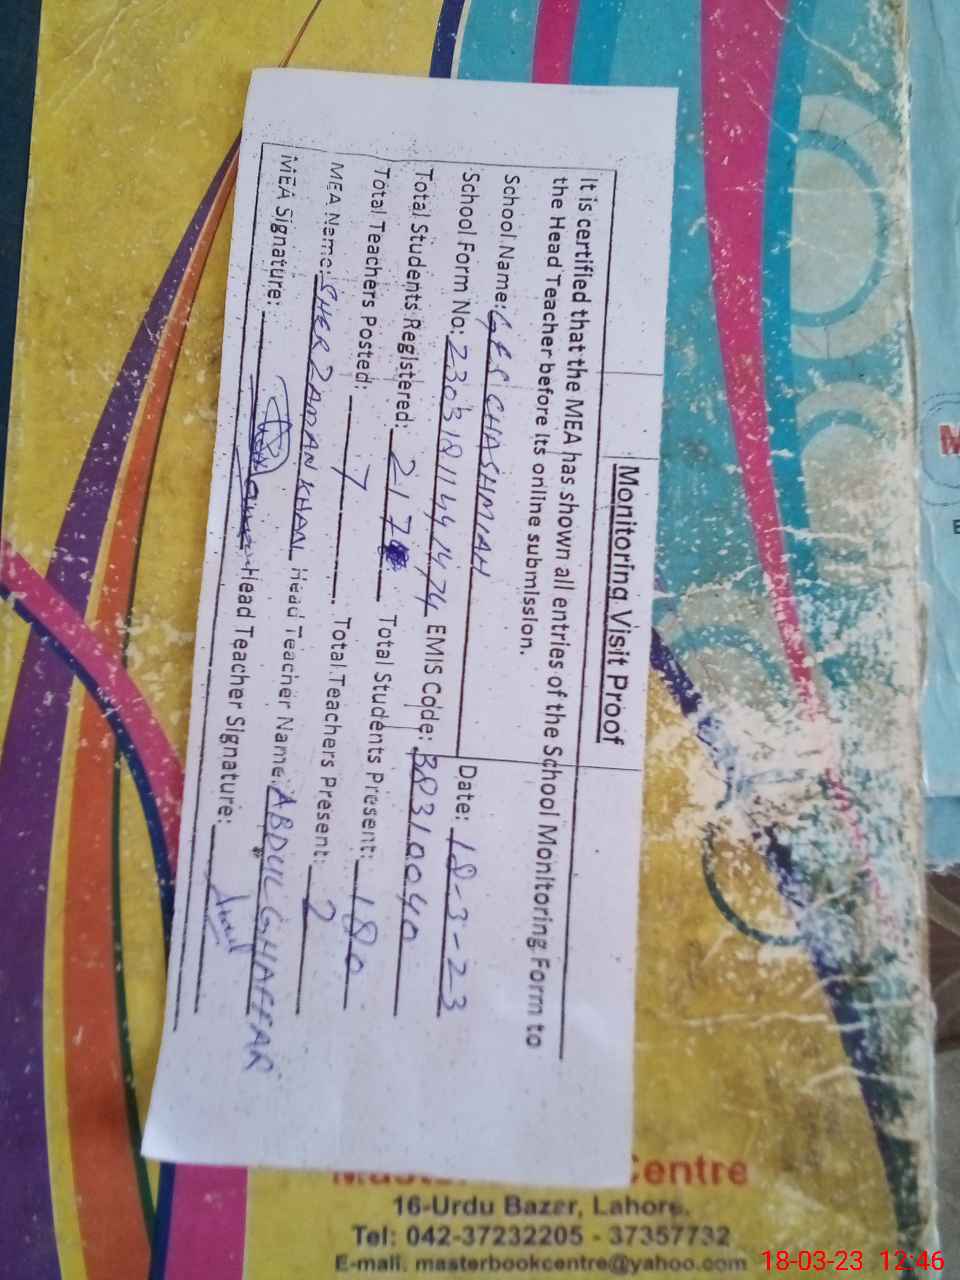 Monitoring Visit Proof
It is certified that the MEA has shown all entries of the School Monitoring Form to
the Head Teacher before its online submission.
School Name: GPS CHASHMIAH Date: 18-3-23
School Form No: EMIS Code: 38310040
Total Students Registered: 217 Total Students Present: 180
Total Teachers Posted: 7 Total Teachers Present: 2
MEA Name: SHER ZAMAN KHAN Head Teacher Name: ABDUL GHAFFAR
MEA Signature: Head Teacher Signature:
Centre
16-Urdu Bazar, Lahore.
Tel: 042-37232205 - 37357732
E-mail. masterbookcentre@yahoo.com
18-03-23 12:46